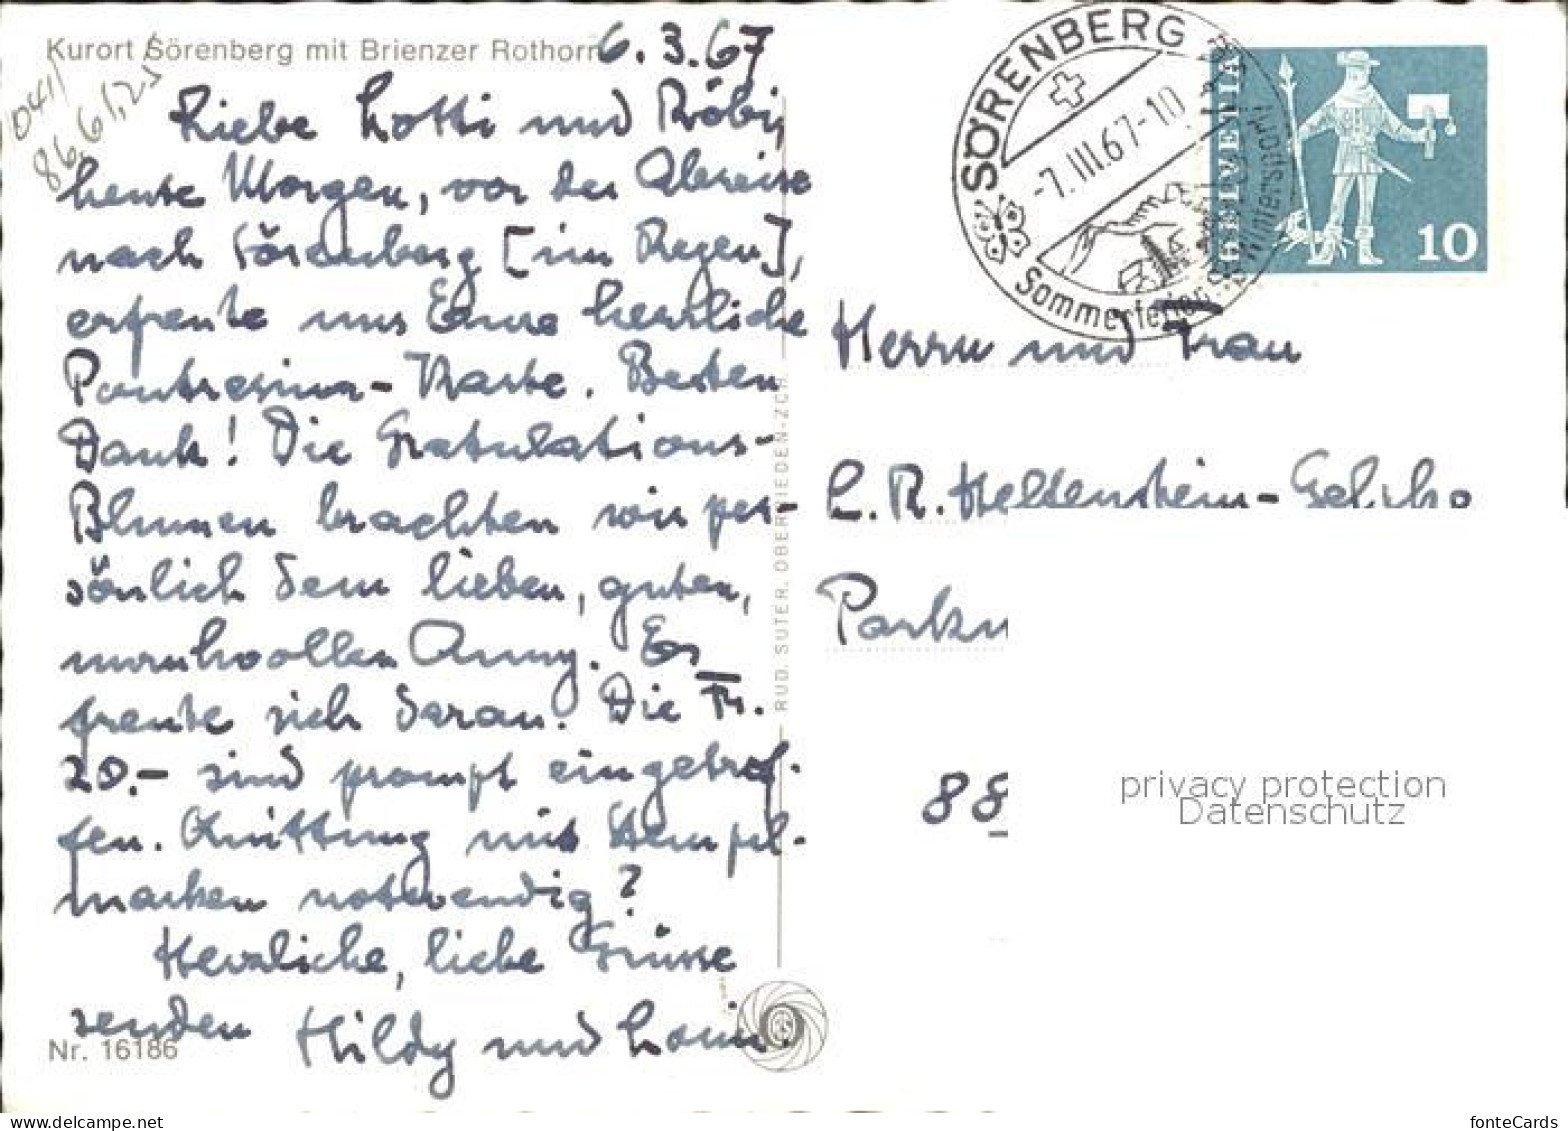 Kurort Sörenberg mit Brienzer Rothorn
6.3.67
041/
86.61.25
Liebe Lotti und Röbi,
heute Morgen, vor der Abreise
nach Sörenberg [im Regen],
erfreute uns Eure herrliche
Pontresina-Karte. Besten
Dank! Die Gratulations-
Blumen brachten wir per-
sönlich dem lieben, guten,
Anny. Es
freute sich daran. Die Fr.
20.- sind prompt eingetrof-
fen. Quittung mit Stempel-
marken notwendig?
Herzliche, liebe Grüsse
senden Hildy und Louis.
Nr. 16186
RUD. SUTER, OBERRIEDEN-ZCH.
SÖRENBERG
-7.III.67-10
Sommerferien Wintersport
HELVETIA
10
Herrn und Frau
L. R. Heldenstein-
Parkw
88
privacy protection
Datenschutz
www.delcampe.net
fonteCards